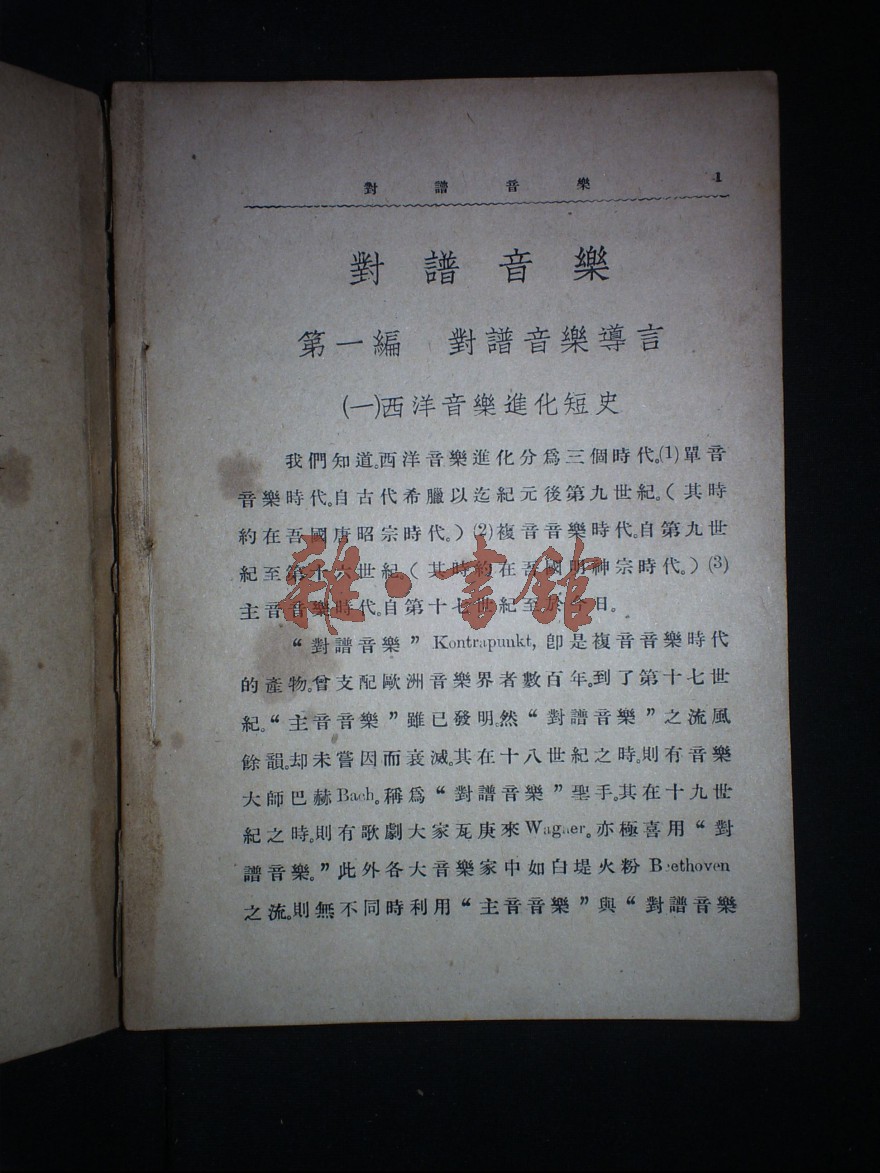 對譜音樂 1
對譜音樂
第一編 對譜音樂導言
(一)西洋音樂進化短史
我們知道。西洋音樂進化分爲三個時代。(1)單音
音樂時代。自古代希臘以迄紀元後第九世紀。(其時
約在吾國唐昭宗時代。)(2)複音音樂時代。自第九世
紀至第十六世紀。(其時約在吾國明神宗時代。)(3)
主音音樂時代。自第十七世紀至於今日。
“對譜音樂” Kontrapunkt, 卽是複音音樂時代
的產物。曾支配歐洲音樂界者數百年。到了第十七世
紀。“主音音樂”雖已發明。然“對譜音樂”之流風
餘韻。却未嘗因而衰滅。其在十八世紀之時。則有音樂
大師巴赫 Bach。稱爲“對譜音樂”聖手。其在十九世
紀之時。則有歌劇大家瓦庚來 Wagner。亦極喜用“對
譜音樂。”此外各大音樂家中如白堤火粉 Beethoven
之流。則無不同時利用“主音音樂”與“對譜音樂
雜·書館